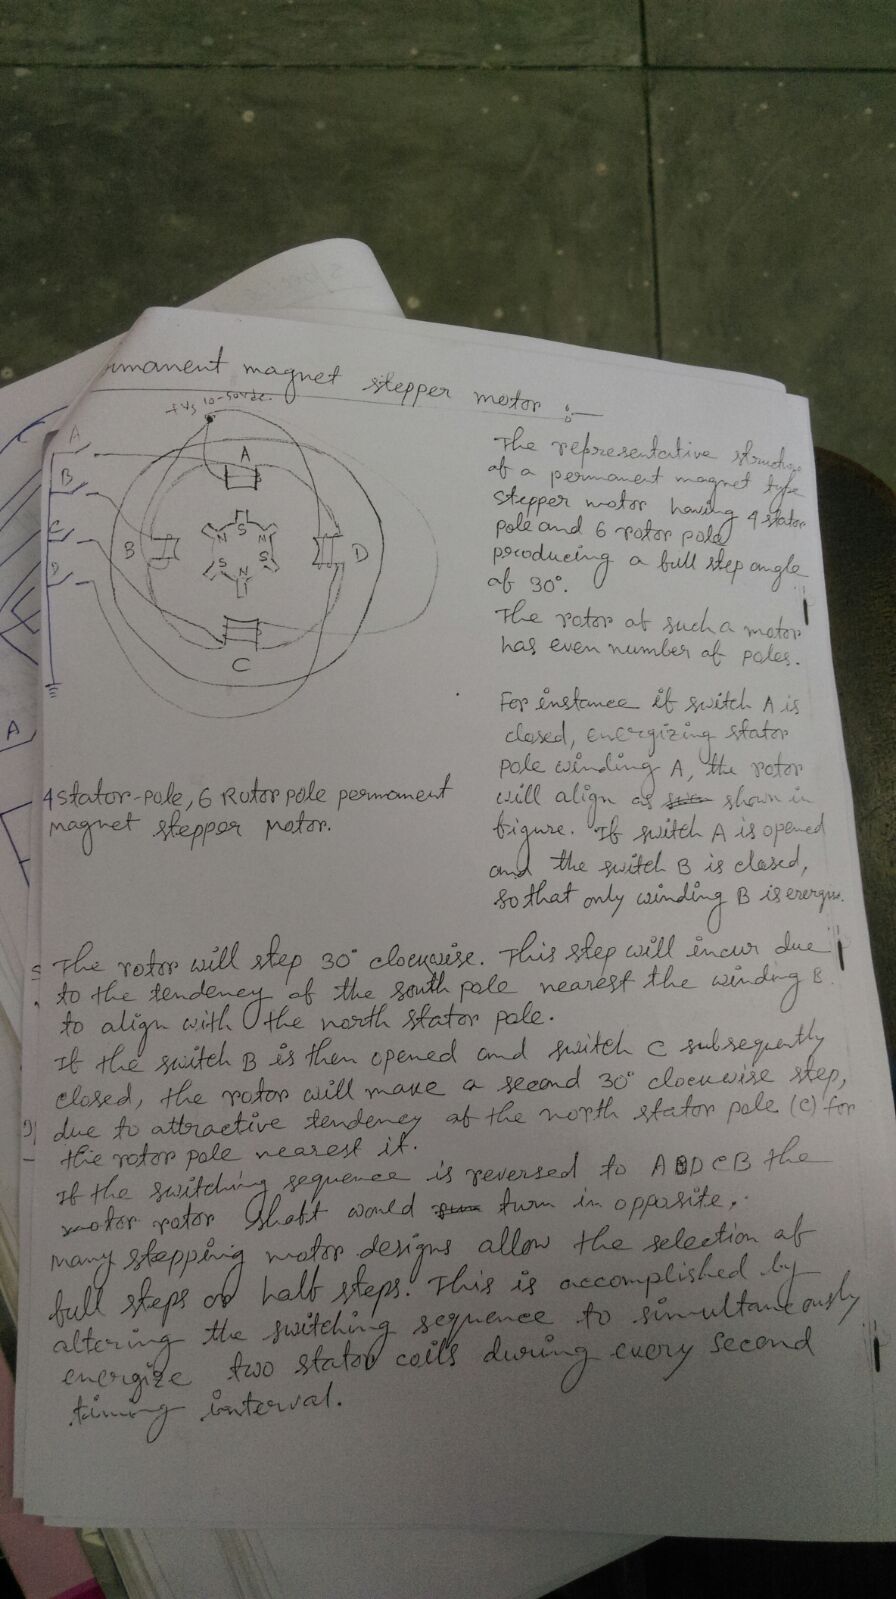 rmanent magnet stepper motor :-
+Vs 10-50Vdc.
A
B
C
D
A
B
D
C
S
N
N
S
S
N
The representative structure
of a permanent magnet type
stepper motor having 4 stator
pole and 6 rotor pole
producing a full step angle
of 30°.
The rotor of such a motor
has even number of poles.
For instance if switch A is
closed, energizing stator
pole winding A, the rotor
will align as shown in
figure. If switch A is opened
and the switch B is closed,
so that only winding B is
4 stator-pole, 6 Rotor pole permanent
magnet stepper Motor.
The rotor will step 30° clockwise. This step will incur due
to the tendency of the south pole nearest the winding B
to align with the north stator pole.
If the switch B is then opened and switch C subsequently
closed, the rotor will make a second 30° clockwise step,
due to attractive tendency of the north stator pole (C) for
the rotor pole nearest it.
If the switching sequence is reversed to ADCB the
motor rotor shaft would turn in opposite.
Many stepping motor designs allow the selection of
full steps or half steps. This is accomplished by
altering the switching sequence to simultaneously
energize two stator coils during every second
timing interval.
A